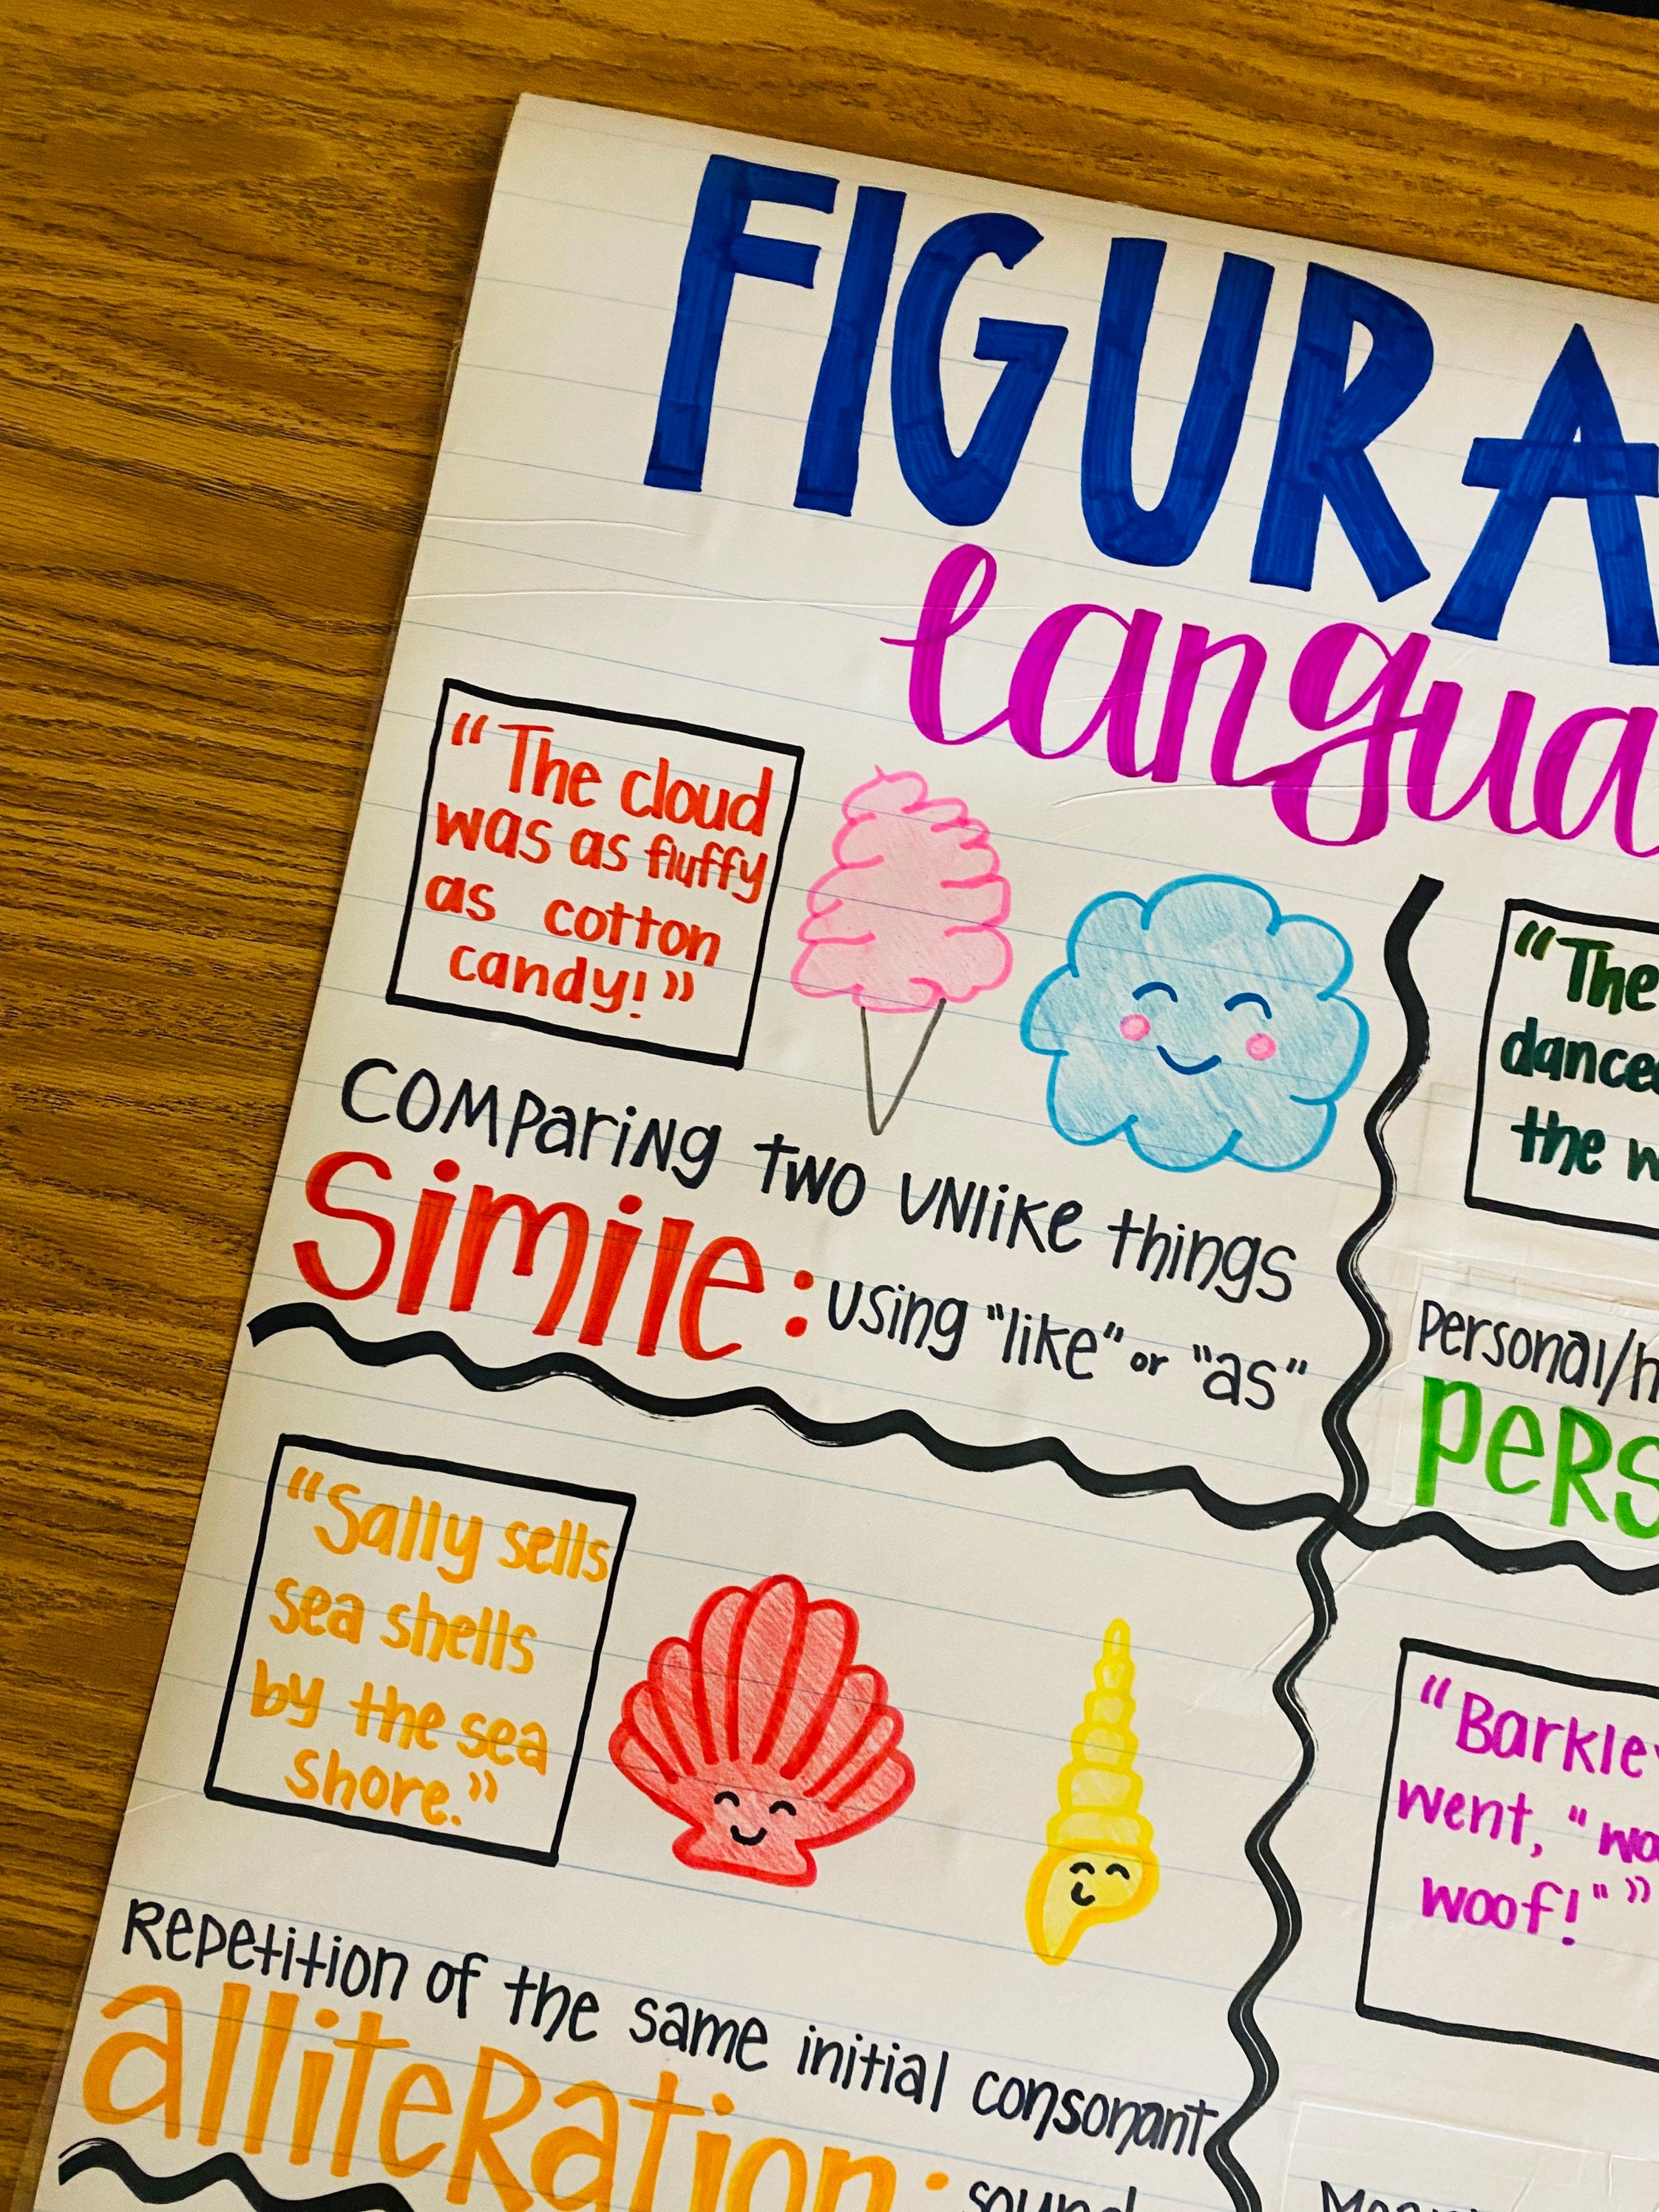 FIGURA
langua
"The cloud
was as fluffy
as cotton
candy!"
Comparing two unlike things
Simile: using "like" or "as"
"The
dance
the w
Personal/h
PERS
"Sally sells
sea shells
by the sea
shore."
Repetition of the same initial consonant
alliteration: sound
"Barkley
went, "wo
woof!""